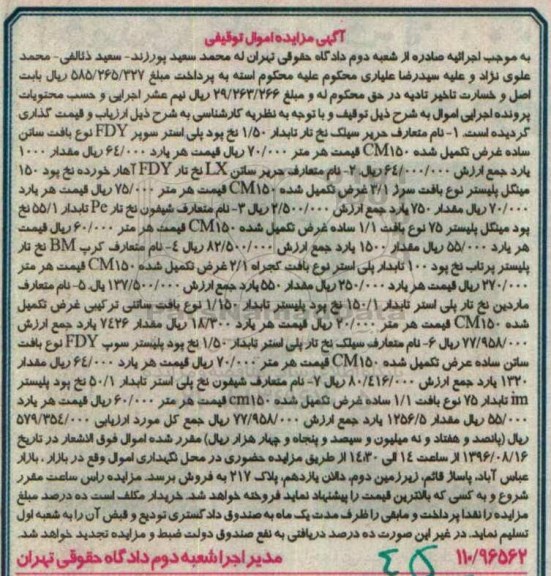 آگهی مزایده اموال توقیفی
به موجب اجرائیه صادره از شعبه دوم دادگاه حقوقی تهران له محمد سعید پورزند- سعید ذلفی- محمد
علوی نژاد و علیه سیدرضا علیاری محکوم علیه محکوم استه به پرداخت مبلغ ۵۸۵/۲۶۵/۳۲۷ ریال بابت
اصل و خسارت تاخیر تادیه در حق محکوم له و مبلغ ۲۹/۲۶۳/۲۶۶ ریال نیم عشر اجرایی و حسب محتویات
پرونده اجرایی اموال به شرح ذیل توقیف و با توجه به نظریه کارشناسی به شرح ذیل ارزیاب و قیمت گذاری
گردیده است. ۱- نام متعارف حریر سیلک نخ تار تابدار ۱/۵۰ نخ پود پلی استر سوپر FDY نوع بافت ساتن
ساده عرض تکمیل شده CM۱۵۰ قیمت هر متر ۷۰/۰۰۰ ریال قیمت هر یارد ۶۴/۰۰۰ ریال مقدار ۱۰۰۰
یارد جمع ارزش ۶۴/۰۰۰/۰۰۰ ریال ۲- نام متعارف حریر ساتن LX نخ تار FDY آهار خورده نخ پود ۱۵۰
مینگل پلیستر نوع بافت سرژ ۳/۱ عرض تکمیل شده CM۱۵۰ قیمت هر متر ۷۵/۰۰۰ ریال قیمت هر یارد
۷۰/۰۰۰ ریال مقدار ۷۵۰ یارد جمع ارزش ۲/۵۰۰/۰۰۰ ریال ۳- نام متعارف شیفون نخ تار Pe تابدار ۵۵/۱ نخ
پود مینگل پلیستر ۷۵ نوع بافت ۱/۱ ساده عرض تکمیل شده CM۱۵۰ قیمت هر متر ۶۰/۰۰۰ ریال قیمت
هر یارد ۵۵/۰۰۰ ریال مقدار ۱۵۰۰ یارد جمع ارزش ۸۲/۵۰۰/۰۰۰ ریال ۴- نام متعارف کرپ BM نخ تار
پلیستر پرتاب نخ پود ۱۰۰ تابدار پلی استر نوع بافت کجراه ۲/۱ عرض تکمیل شده CM۱۵۰ قیمت هر متر
۲۷۰/۰۰۰ ریال قیمت هر یارد ۲۵۰/۰۰۰ ریال مقدار ۵۵۰ یارد جمع ارزش ۱۳۷/۵۰۰/۰۰۰ ریال ۵- نام متعارف
ماردین نخ تار پلی استر تابدار ۱۵۰/۱ نخ پود پلیستر تابدار ۱/۱۵۰ نوع بافت ساتنی ترکیبی عرض تکمیل
شده CM۱۵۰ قیمت هر متر ۲۰/۰۰۰ ریال قیمت هر یارد ۱۸/۳۰۰ ریال مقدار ۷۴۲۶ یارد جمع ارزش
۷۷/۹۵۸/۰۰۰ ریال ۶- نام متعارف سیلک نخ تار پلی استر تابدار ۱/۵۰ نخ پود پلیستر سوپ FDY نوع بافت
ساتن ساده عرض تکمیل شده CM۱۵۰ قیمت هر متر ۷۰/۰۰۰ ریال قیمت هر یارد ۶۴/۰۰۰ ریال مقدار
۱۳۲۰ یارد جمع ارزش ۸۰/۴۱۶/۰۰۰ ریال ۷- نام متعارف شیفون نخ پلی استر تابدار ۵۰/۱ نخ پود پلیستر
im تابدار ۷۵ نوع بافت ۱/۱ ساده عرض تکمیل شده cm۱۵۰ قیمت هر متر ۶۰/۰۰۰ ریال قیمت هر یارد
۵۵/۰۰۰ ریال مقدار ۱۲۵۶/۵ یارد جمع ارزش ۷۷/۹۵۸/۰۰۰ ریال جمع کل مورد ارزیابی ۵۷۹/۳۵۴/۰۰۰
ریال (پانصد و هفتاد و نه میلیون و سیصد و پنجاه و چهار هزار ریال) مقرر شده اموال فوق الاشعار در تاریخ
۱۳۹۶/۰۸/۱۶ از ساعت ۱۴ الی ۱۴:۳۰ از طریق مزایده حضوری در محل نگهداری اموال وقع در بازار، بازار
عباس آباد، پاساژ قائم، زیرزمین دوم، دالان یازدهم، پلاک ۲۱۷ به فروش برسد. مزایده راس ساعت مقرر
شروع و به کسی که بالاترین قیمت را پیشنهاد نماید فروخته خواهد شد. خریدار مکلف است ده درصد مبلغ
مزایده را نقدا پرداخت و مابقی را ظرف مدت یک ماه به صندوق دادگستری تودیع و قبض آن را به شعبه اول
تسلیم نماید. در غیر این صورت ده درصد دریافتی به نفع صندوق دولت ضبط و مزایده تجدید خواهد شد.
۱۱۰/۹۶۵۶۲ مدیر اجرا شعبه دوم دادگاه حقوقی تهران